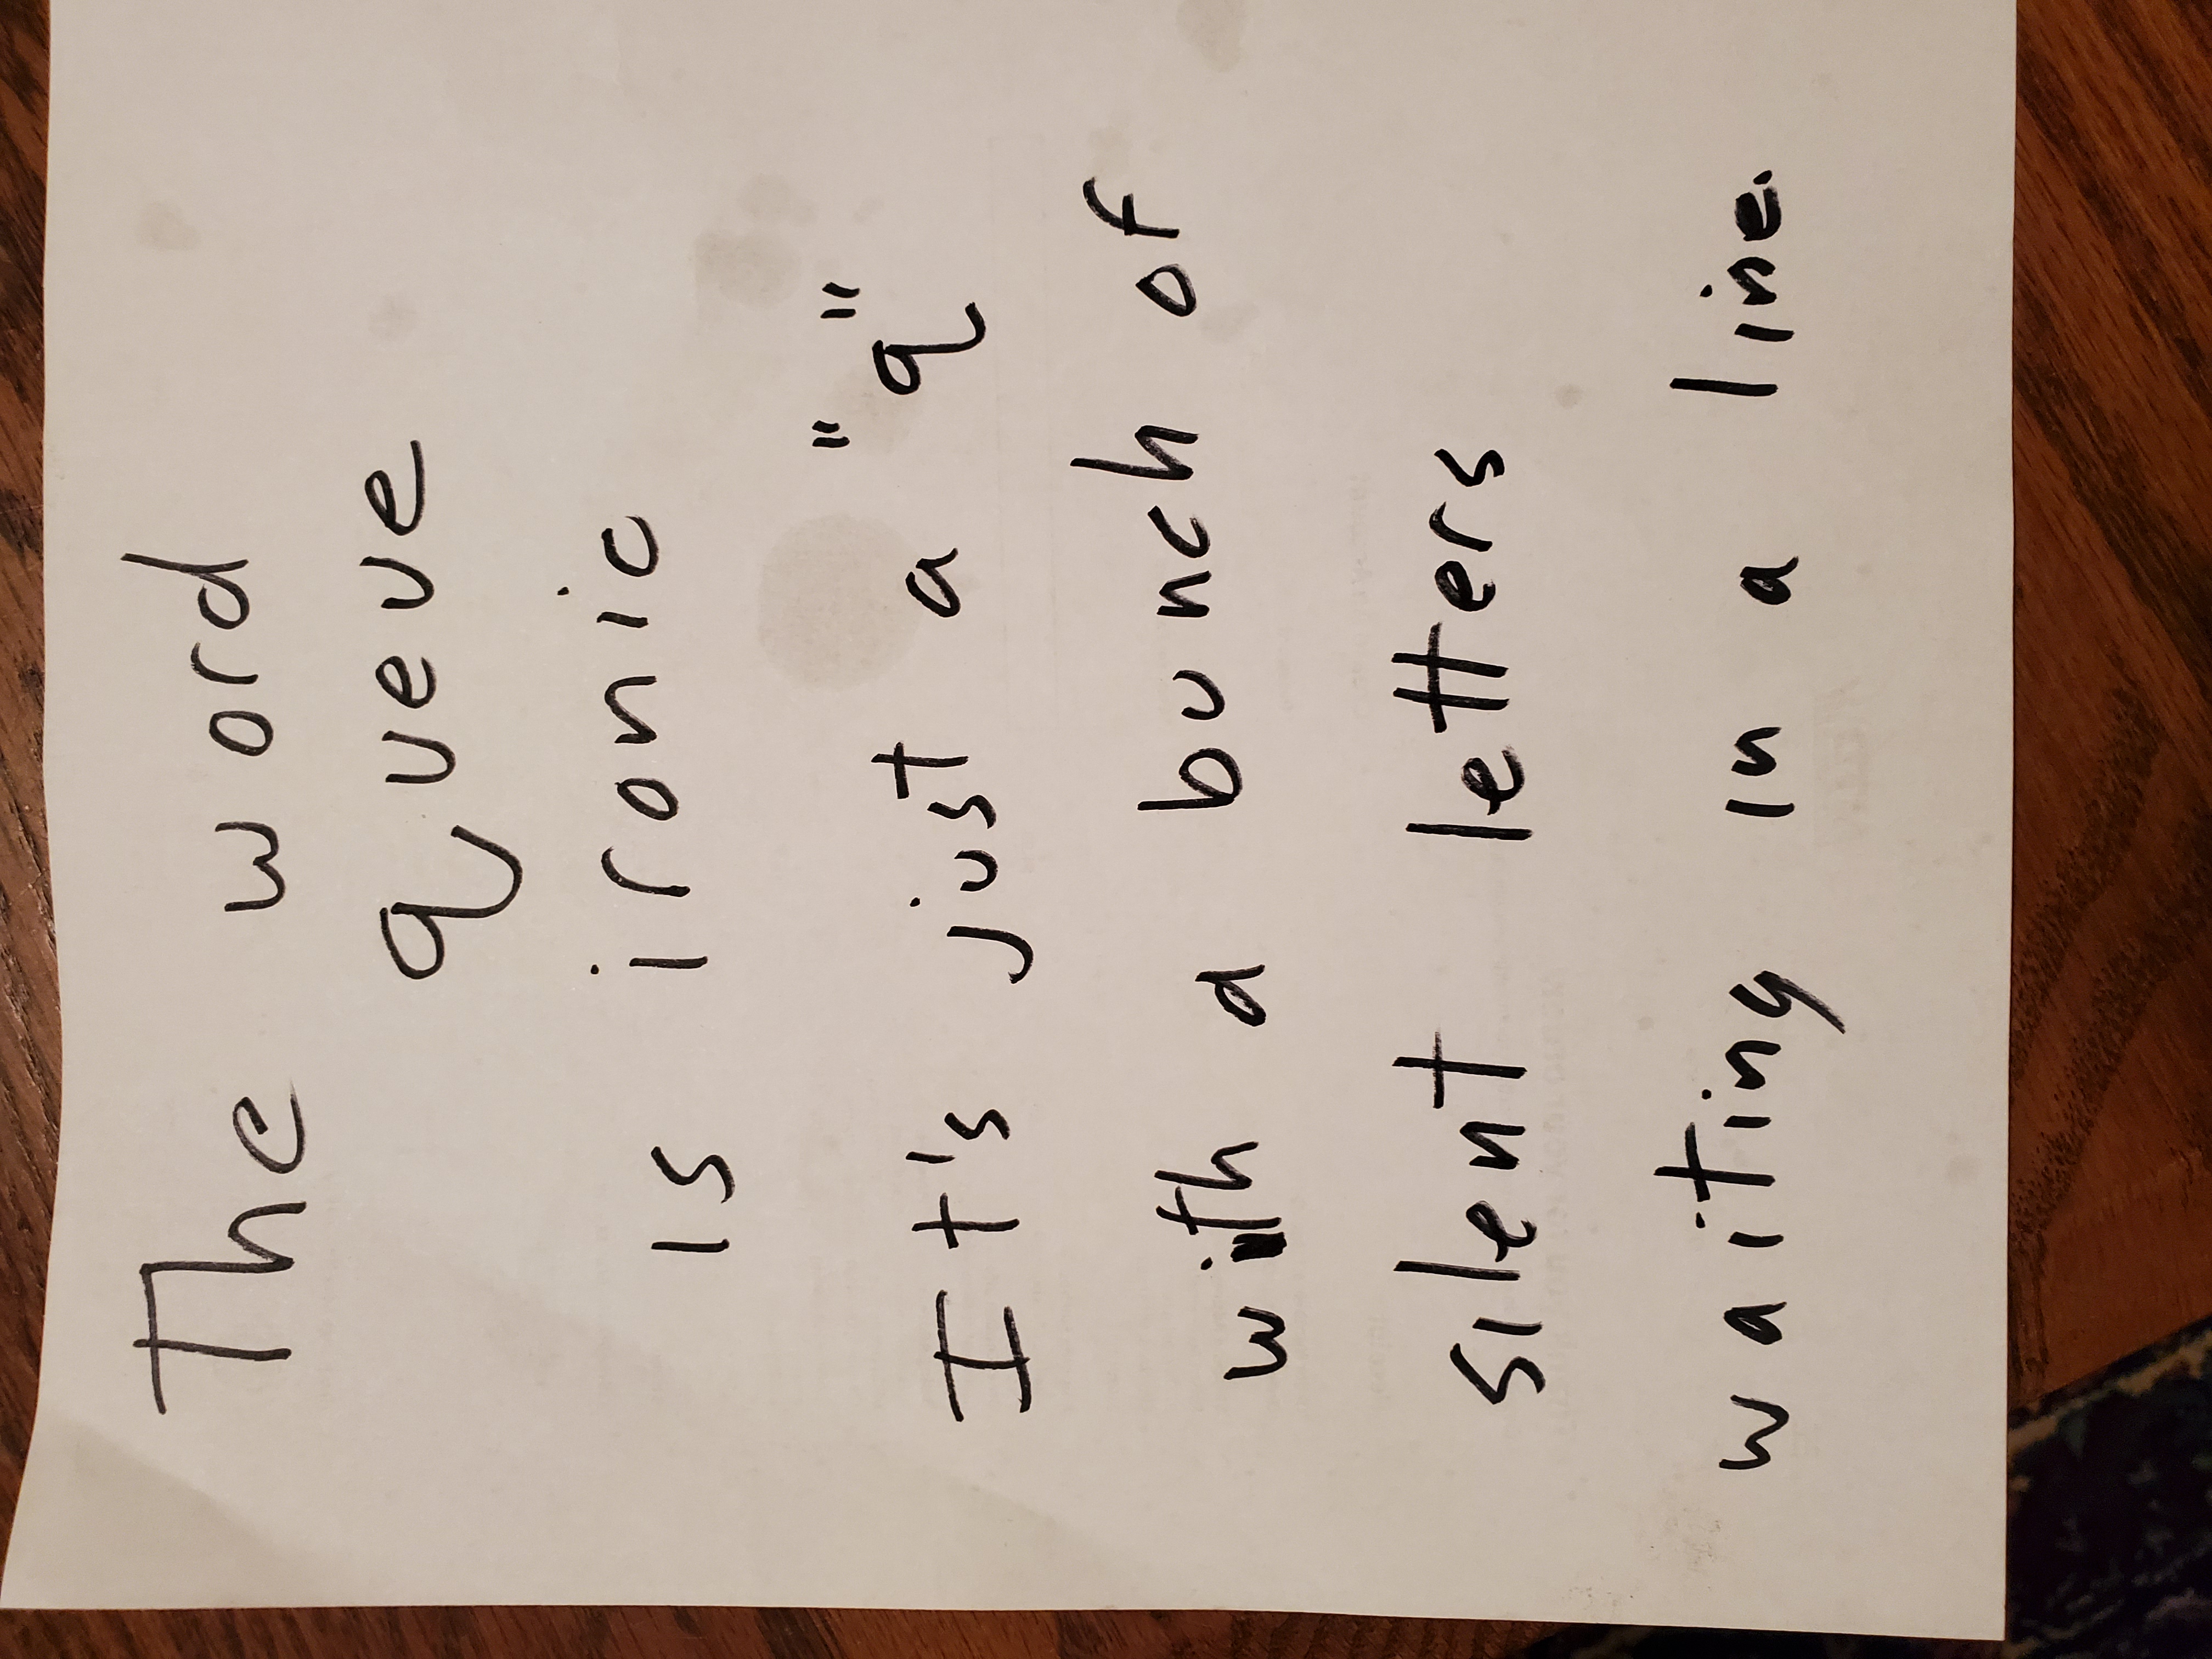 The word
queue
is ironic
It's just a "q"
with a bunch of
silent letters
waiting in a line.